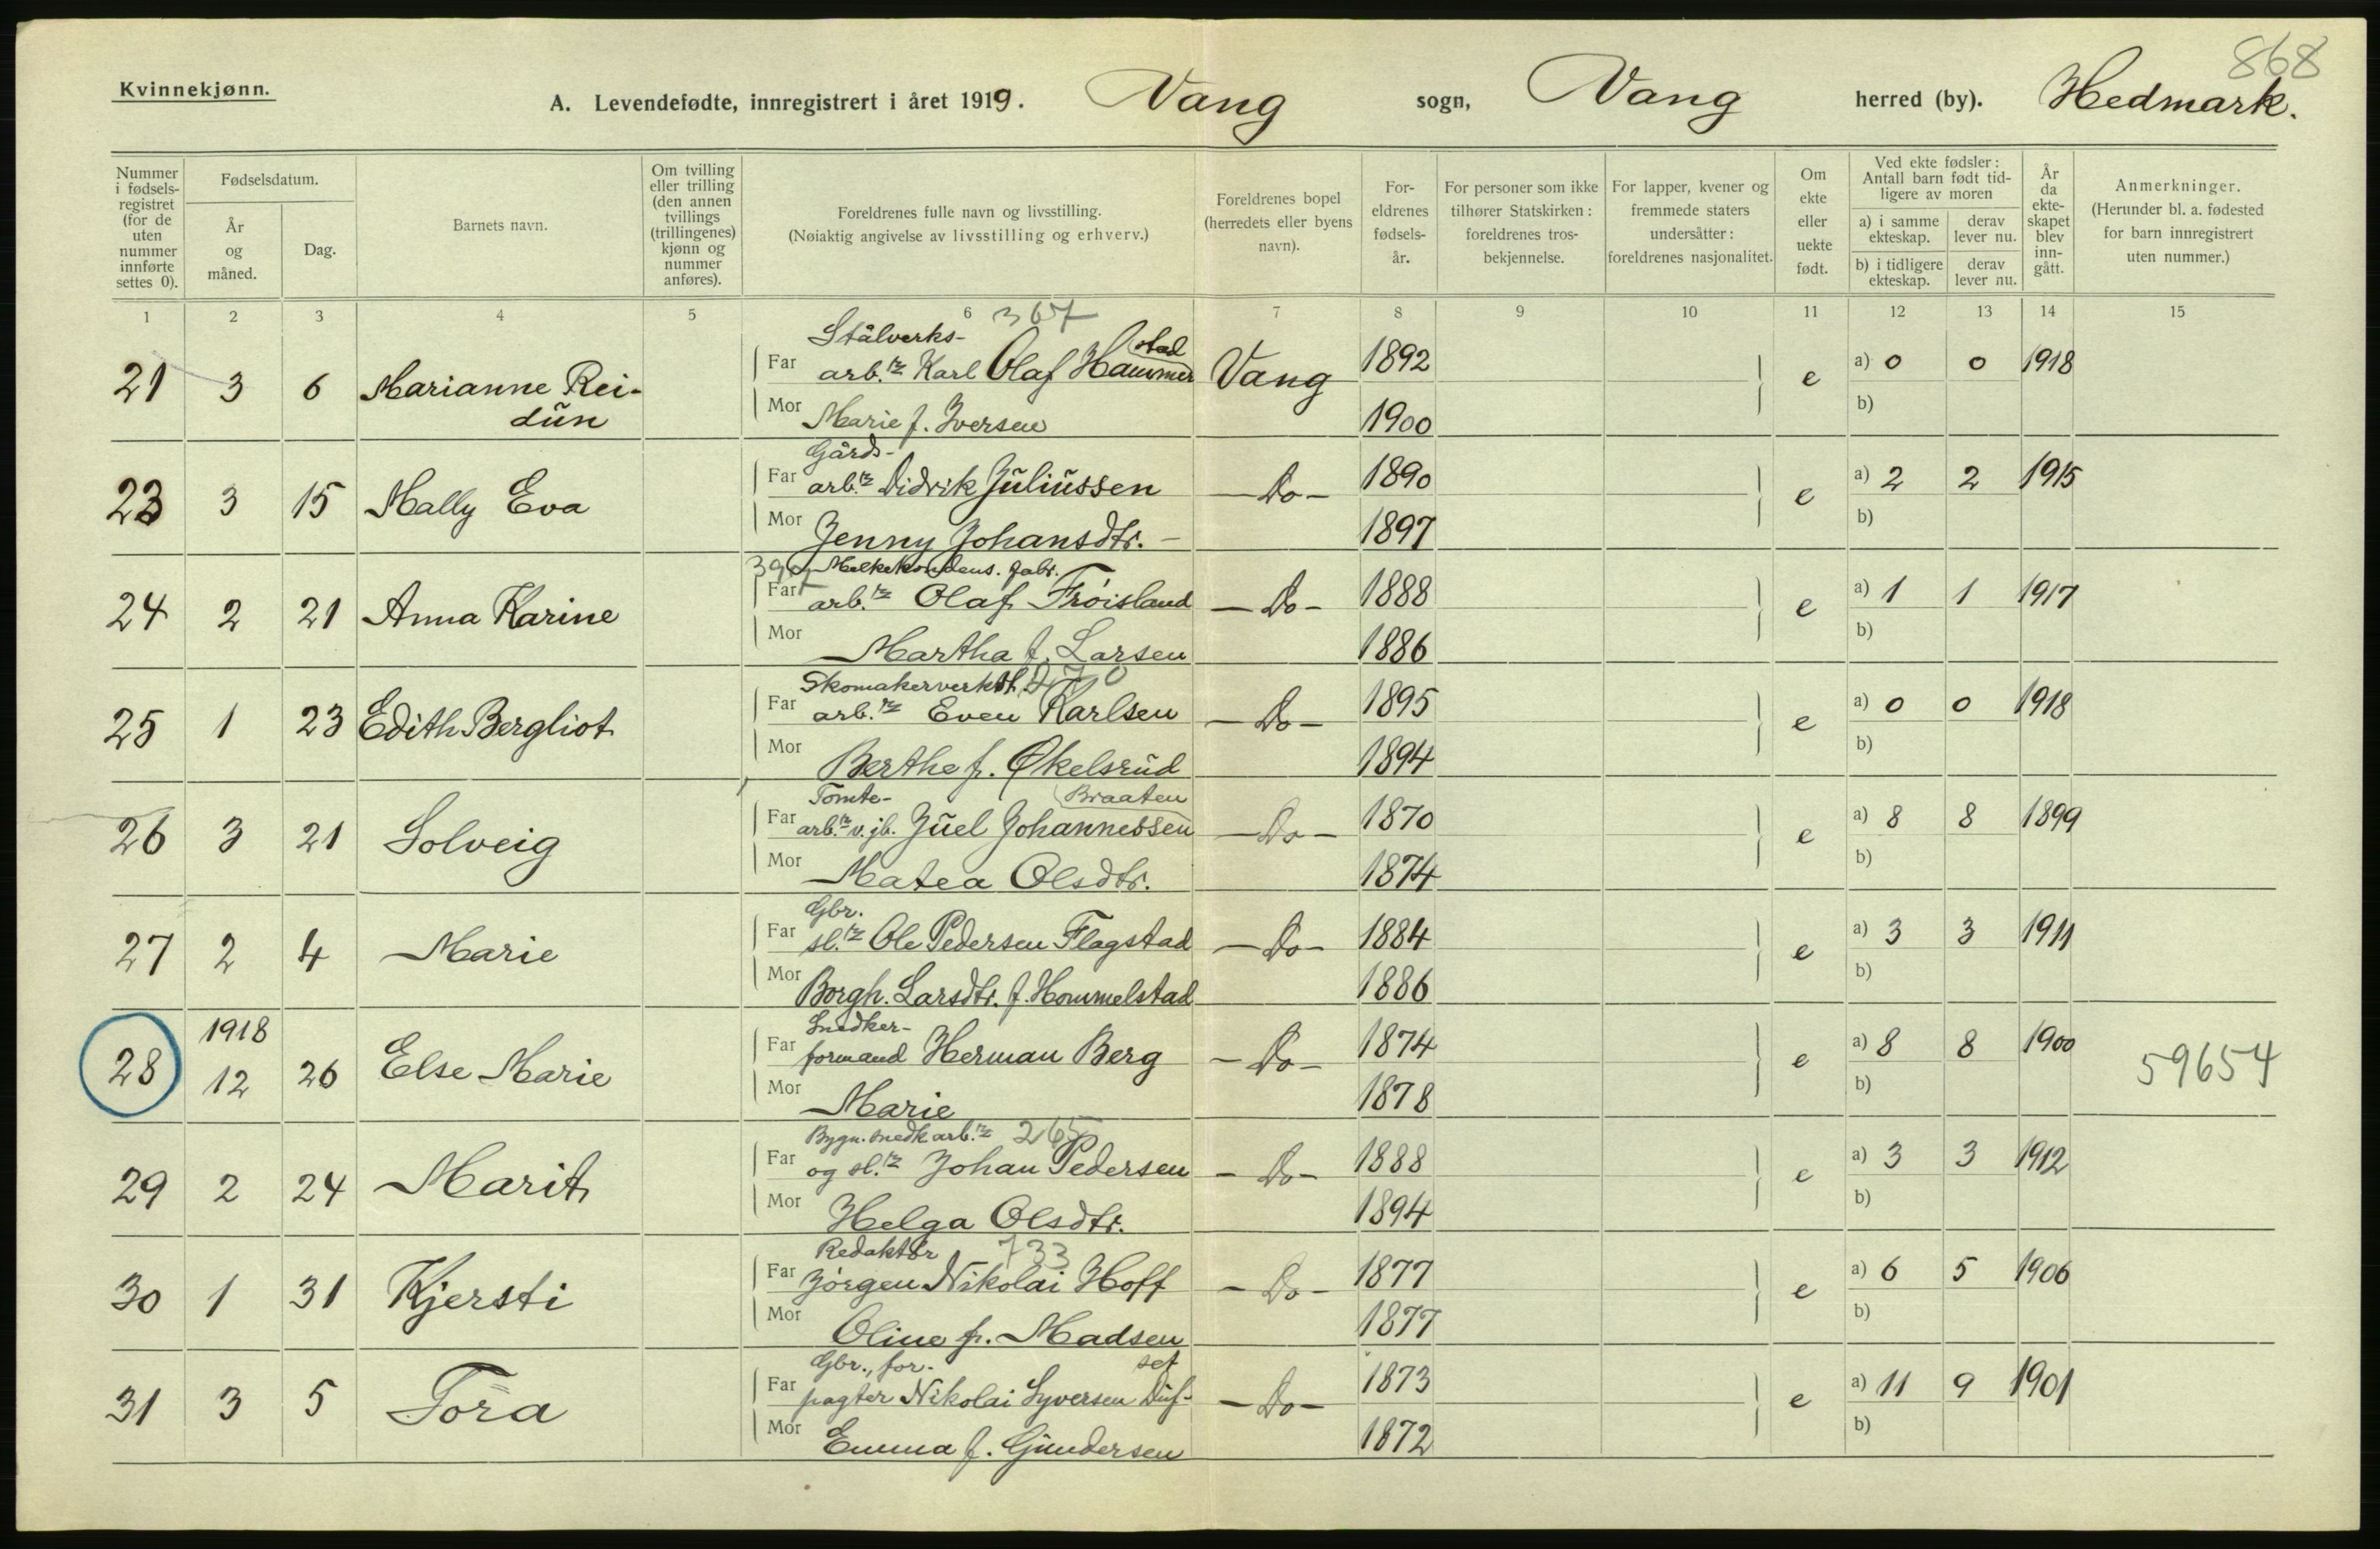 868
Kvinnekjønn.
A. Levendefødte, innregistrert i året 1919. Vang sogn, Vang herred (by). Hedmark.
Nummer i fødselsregistret (for de uten nummer innførte settes 0).
Fødselsdatum.
År og måned.
Dag.
Barnets navn.
Om tvilling eller trilling (den annen tvillings (trillingenes) kjønn og nummer anføres).
Foreldrenes fulle navn og livsstilling.
(Nøiaktig angivelse av livsstilling og erhverv.)
Foreldrenes bopel (herredets eller byens navn).
Foreldrenes fødselsår.
For personer som ikke tilhører Statskirken: foreldrenes trosbekjennelse.
For lapper, kvener og fremmede staters undersåtter: foreldrenes nasjonalitet.
Om ekte eller uekte født.
Ved ekte fødsler: Antall barn født tidligere av moren
a) i samme ekteskap. derav lever nu.
b) i tidligere ekteskap. derav lever nu.
År da ekteskapet blev inngått.
Anmerkninger.
(Herunder bl. a. fødested for barn innregistrert uten nummer.)
1 2 3 4 5 6 7 8 9 10 11 12 13 14 15
367
Stålverks-
stad
21 3 6 Marianne Rei- Far arb.r Karl Olaf Hammer Vang 1892 e a) 0 0 1918
dũn Mor Marie f. Iversen 1900 b)
Gårds-
23 3 15 Mally Eva Far arb.r Didrik Jũliũssen — Do — 1890 e a) 2 2 1915
Mor Jenny Johansdtr. — 1897 b)
Melkekondens. fabr.
24 2 21 Anna Karine Far arb.r Olaf Frøisland — Do — 1888 e a) 1 1 1917
Mor Martha f. Larsen 1886 b)
Skomakerverkst.
25 1 23 Edith Bergliot Far arb.r Even Karlsen — Do — 1895 e a) 0 0 1918
Mor Berthe f. Økelsrũd 1894 b)
Tomte- Braaten
26 3 21 Solveig Far arb.r v. jb. Jũel Johannessen — Do — 1870 e a) 8 8 1899
Mor Matea Olsdtr. 1874 b)
Gbr.
27 2 4 Marie Far sl.r Ole Pedersen Flagstad — Do — 1884 e a) 3 3 1911
Mor Borgh. Larsdtr. f. Hommelstad 1886 b)
1918 Snedker-
28 12 26 Else Marie Far formand Herman Berg — Do — 1874 e a) 8 8 1900 59654
Mor Marie 1878 b)
Bygn. snedk arb.r 265
29 2 24 Marit Far og sl.r Johan Pedersen — Do — 1888 e a) 3 3 1912
Mor Helga Olsdtr. 1894 b)
Redaktør 733
30 1 31 Kjersti Far Jørgen Nikolai Hoff — Do — 1877 e a) 6 5 1906
Mor Oline f. Madsen 1877 b)
Gbr., for- set
31 3 5 Tora Far pagter Nikolai Syversen Dũf- — Do — 1873 e a) 11 9 1901
Mor Emma f. Gũndersen 1872 b)